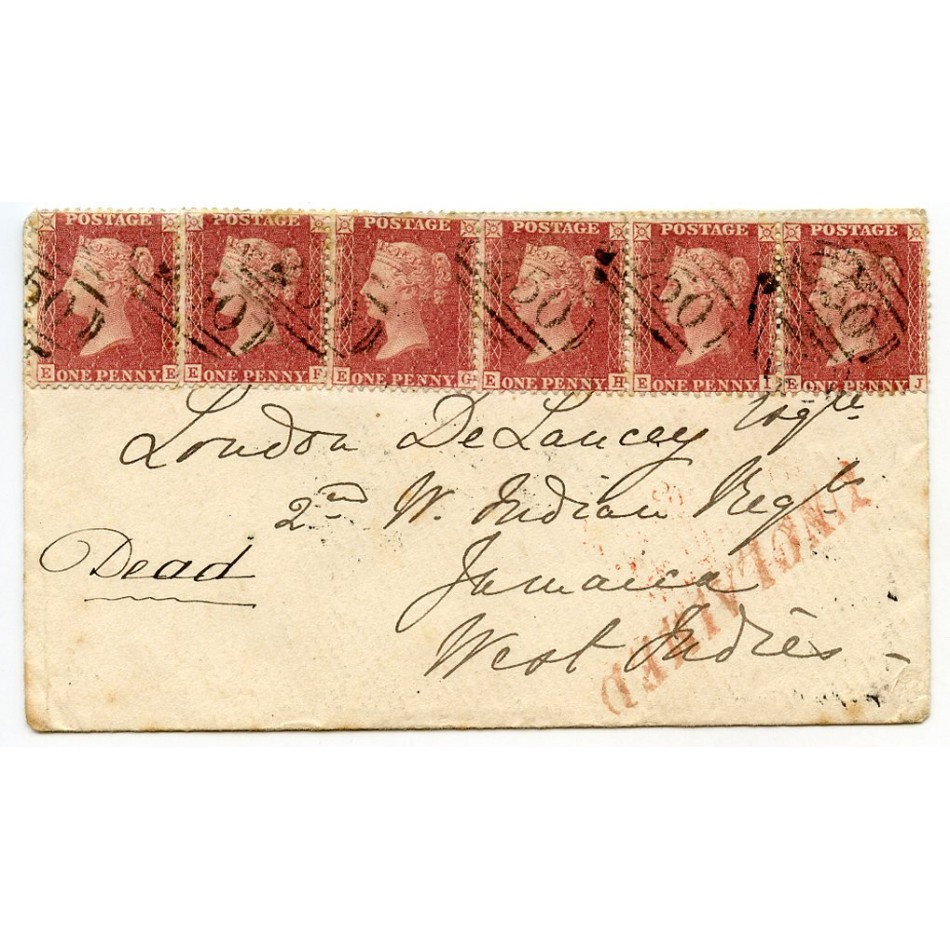 POSTAGE POSTAGE POSTAGE POSTAGE POSTAGE POSTAGE
50 50 50 50
E ONE PENNY E E ONE PENNY F E ONE PENNY G E ONE PENNY H E ONE PENNY I E ONE PENNY J
London DeLancey Esqre
2nd W. Indian Regt
Dead
Jamaica
West Indies
UNCLAIMED